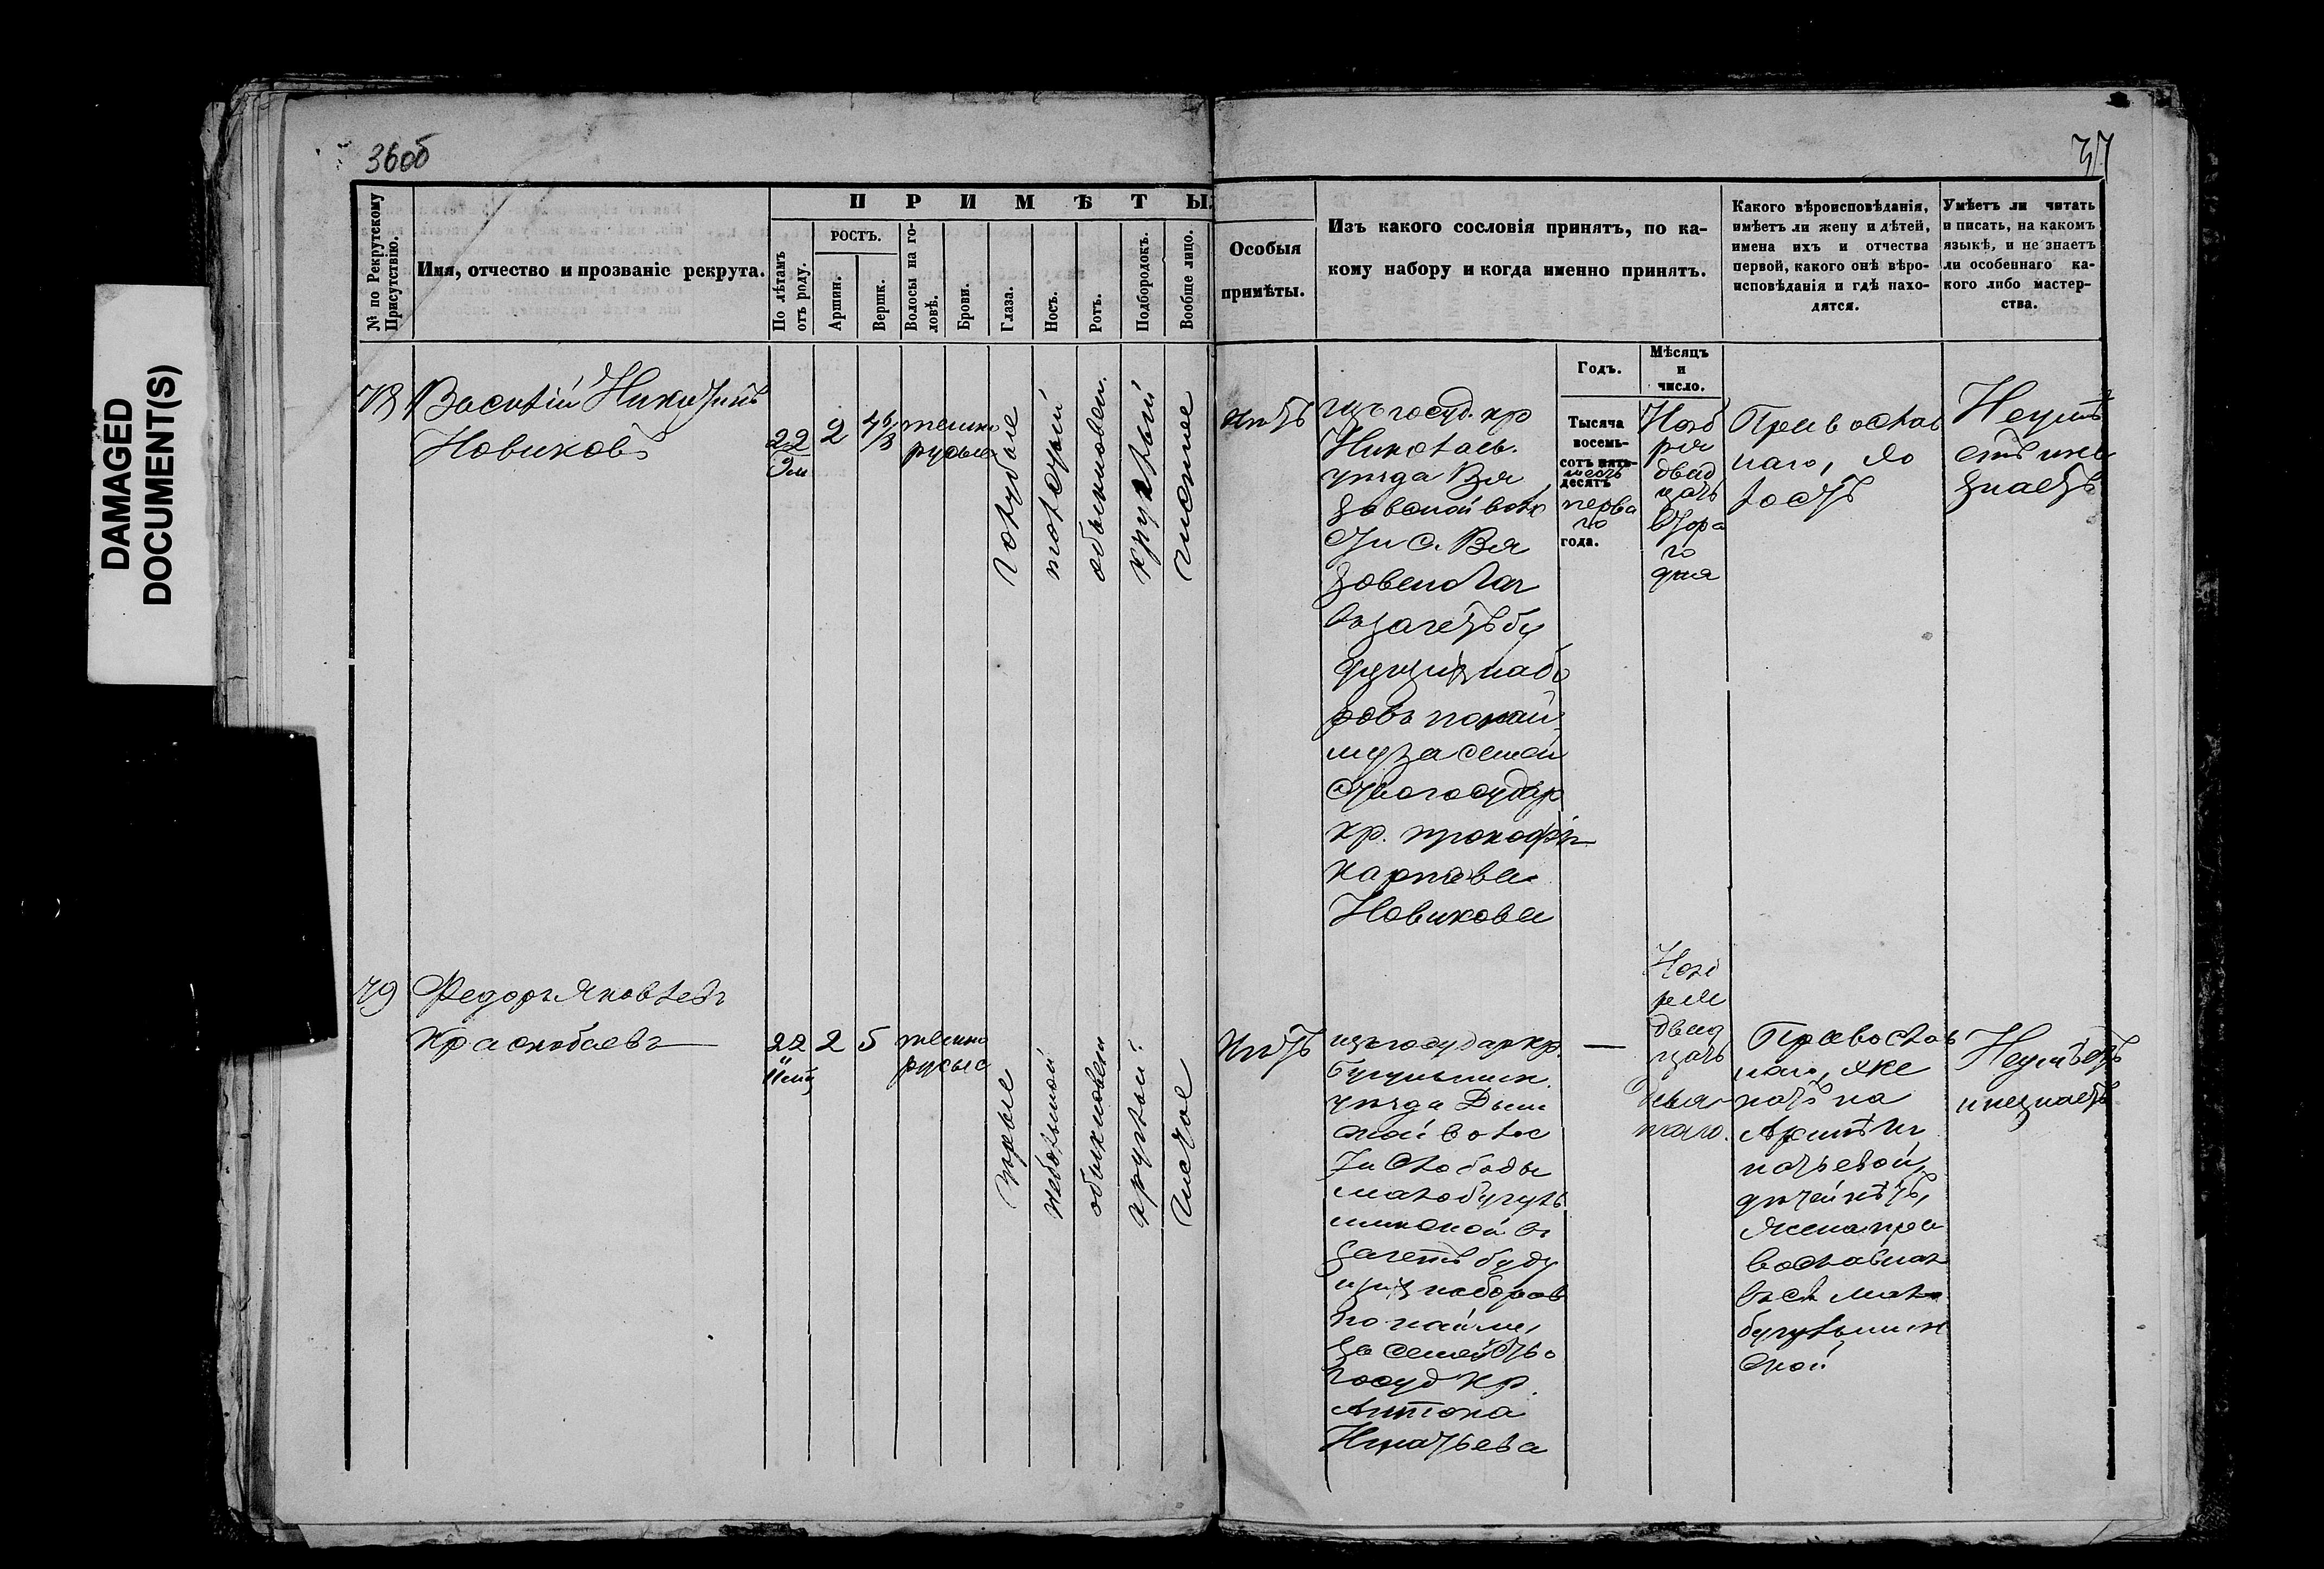 DAMAGED
DOCUMENT(S)
36об
37
№ по Рекрутскому
Присутствію.
Имя, отчество и прозваніе рекрута.
ПРИМѢТЫ.
По лѣтамъ
отъ роду.
РОСТЪ.
Аршин.
Вершк.
Волосы на го-
ловѣ.
Брови.
Глаза.
Носъ.
Ротъ.
Подбородокъ.
Вообще лицо.
Особыя
примѣты.
Изъ какого сословія принятъ, по ка-
кому набору и когда именно принятъ.
Какого вѣроисповѣданія,
имѣетъ ли жену и дѣтей,
имена ихъ и отчества
первой, какого онѣ вѣро-
исповѣданія и гдѣ нахо-
дятся.
Умѣетъ ли читать
и писать, на какомъ
языкѣ, и не знаетъ
ли особеннаго ка-
кого либо мастер-
ства.
Годъ.
Мѣсяцъ
и
число.
78
Василій Никитинъ
Новиковъ
22
9м
2
4 6/8
темно
русые
голубые
обыкновен.
круглый
чистое
нѣтъ
изъ госуд. кр
Николаев.
уѣзда Вя
зовской воло
сти с. Вя
зовенолаг
въ зачетъ бу
дущихъ набо
ровъ по най
му за семей
ство государ
кр. Прокофія
Карпова
Новикова
Тысяча
восемь-
сотъ пять-
шесть
десятъ
перва
го
года.
Нояб
ря
двад
цать
втора
го
дня
Православ
наго, хо
лостъ
Неумѣ
етъ и не
знаетъ
79
Федоръ Яковлевъ
Краснобаевъ
22
11 мц
2
5
темно
русые
сѣрые
небольшой
обыкновен
круглый
чистое
нѣтъ
изъ государ кр.
Бугульмин.
уѣзда Дым
ской волос
ти слободы
Малобугуль
минской въ
зачетъ буду
щихъ наборовъ
по найму
за семейство
госуд кр.
Антона
Игнатьева
Нояб
ря
двад
цать
девя
таго.
Православ
наго, же
натъ на
Игн
натьевой,
дѣтей нѣтъ,
жена пра
вославная
въ сл. Мало
бугульмин
ской
Неумѣетъ
и незнаетъ